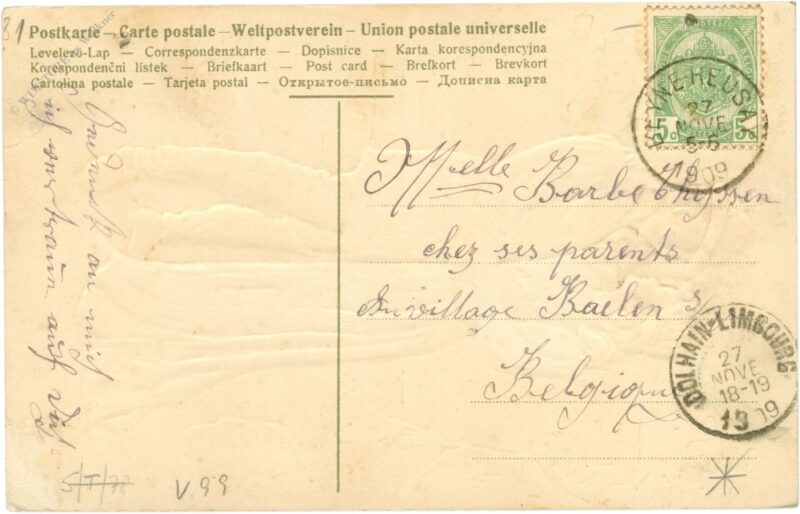 81
Postkarte — Carte postale — Weltpostverein — Union postale universelle
Levelezö-Lap — Correspondenzkarte — Dopisnice — Karta korespondencyjna
Korespondenční listek — Briefkaart — Post card — Brefkort — Brevkort
Cartolina postale — Tarjeta postal — Открытое-письмо — Дописна карта
5c 5c
BEYNE-HEUSAY
27
NOVE
1909
Melle Barbe Thyssen
chez ses parents
Au village Baelen s/
Belgique
DOLHAIN-LIMBOURG
27
NOVE
18-19
1909
an mich
ich
auf
V.99